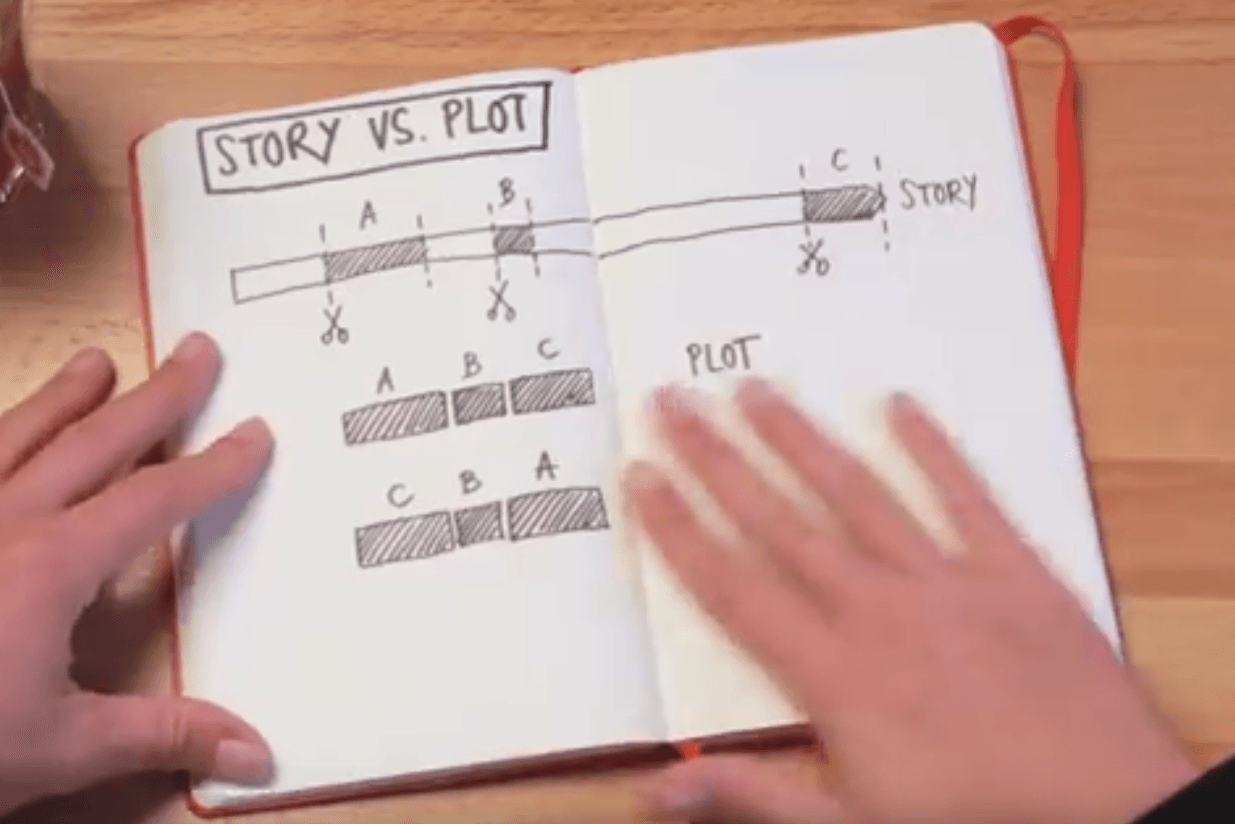 STORY VS. PLOT
A B C
STORY
A B C
PLOT
C B A